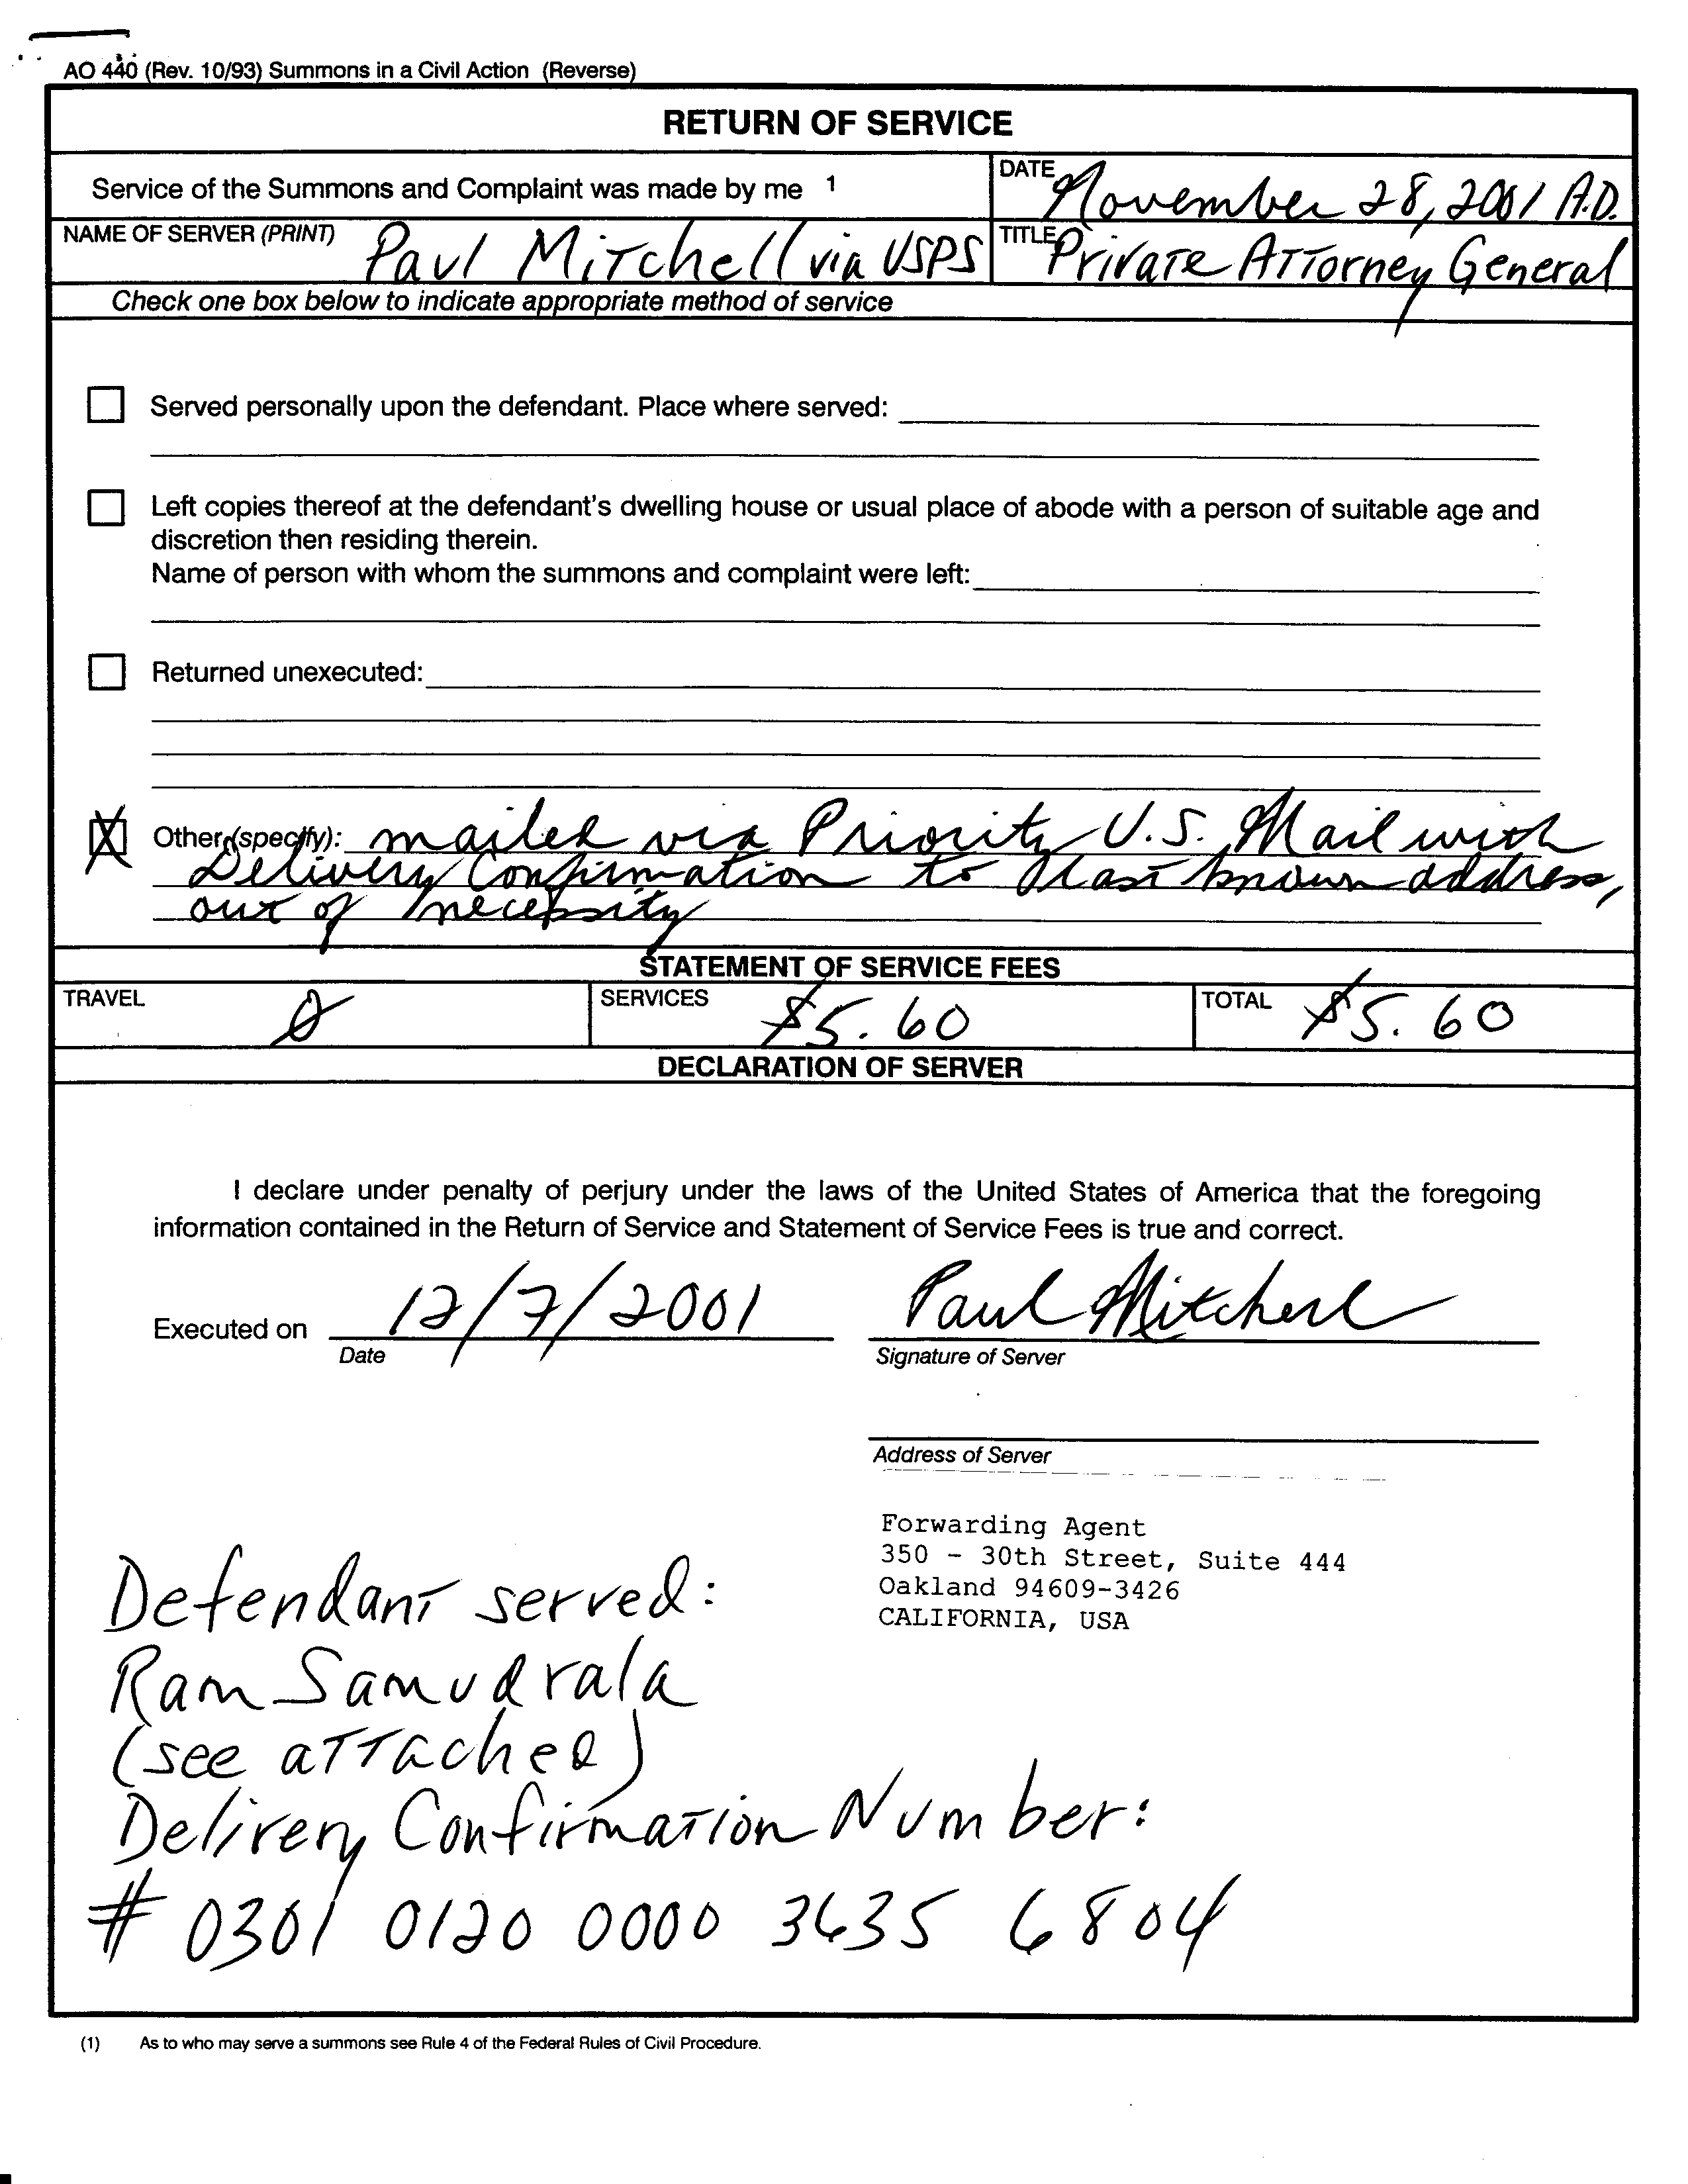 AO 440 (Rev. 10/93) Summons in a Civil Action (Reverse)
RETURN OF SERVICE
Service of the Summons and Complaint was made by me 1
DATE November 28, 2001 A.D.
NAME OF SERVER (PRINT) Paul Mitchell via USPS
TITLE Private Attorney General
Check one box below to indicate appropriate method of service
Served personally upon the defendant. Place where served:
Left copies thereof at the defendant's dwelling house or usual place of abode with a person of suitable age and
discretion then residing therein.
Name of person with whom the summons and complaint were left:
Returned unexecuted:
X Other (specify): mailed via Priority U.S. Mail with
Delivery Confirmation to last known address,
out of necessity
STATEMENT OF SERVICE FEES
TRAVEL 0
SERVICES $5.60
TOTAL $5.60
DECLARATION OF SERVER
I declare under penalty of perjury under the laws of the United States of America that the foregoing
information contained in the Return of Service and Statement of Service Fees is true and correct.
Executed on 12/7/2001
Date
Paul Mitchell
Signature of Server
Address of Server
Forwarding Agent
350 - 30th Street, Suite 444
Oakland 94609-3426
CALIFORNIA, USA
Defendant served:
Ram Samudrala
(see attached)
Delivery Confirmation Number:
# 0301 0120 0000 3635 6804
(1) As to who may serve a summons see Rule 4 of the Federal Rules of Civil Procedure.